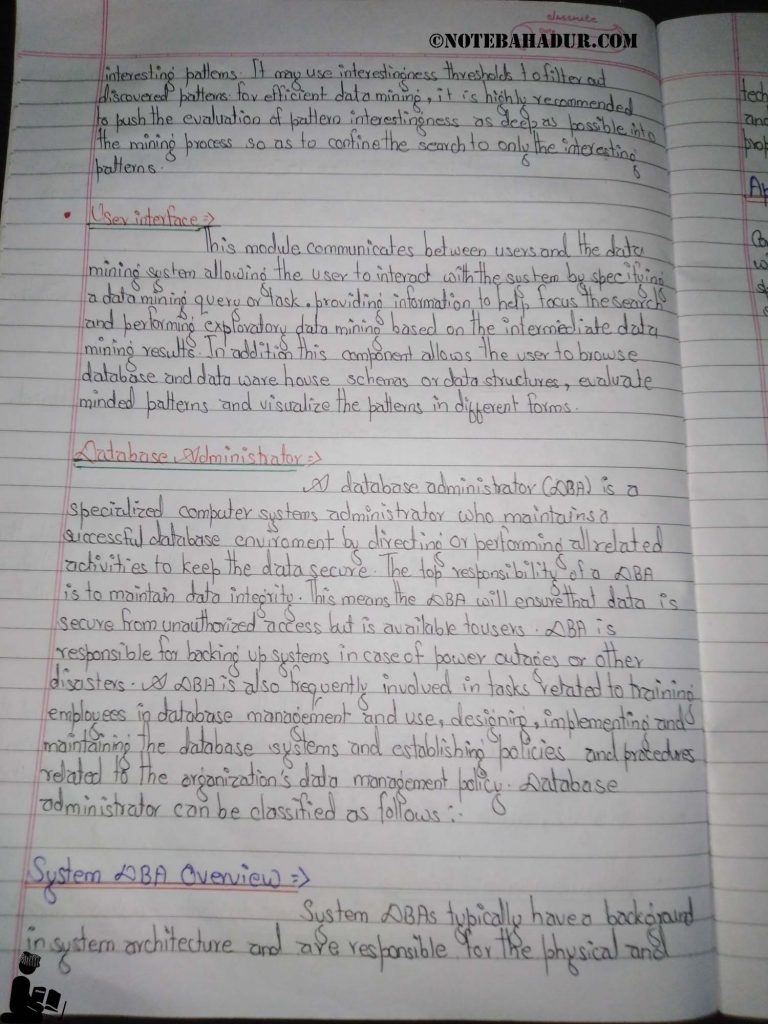 classmate
©NOTEBAHADUR.COM
interesting patterns. It may use interestingness thresholds to filter out
discovered patterns. for efficient data mining, it is highly recommended
to push the evaluation of pattern interestingness as deep as possible into
the mining process so as to confine the search to only the interesting
patterns.
• User interface :⇒
This module communicates between users and the data
mining system allowing the user to interact with the system by specifying
a data mining query or task. providing information to help focus the search
and performing exploratory data mining based on the intermediate data
mining results. In addition this component allows the user to browse
database and data ware house schemas or data structures, evaluate
minded patterns and visualize the patterns in different forms.
Database Administrator :⇒
A database administrator (DBA) is a
specialized computer systems administrator who maintains a
successful database enviroment by directing or performing all related
activities to keep the data secure. The top responsibility of a DBA
is to maintain data integrity. This means the DBA will ensure that data is
secure from unauthorized access but is available to users. DBA is
responsible for backing up systems in case of power outages or other
disasters. A DBA is also frequently involved in tasks related to training
employees in database management and use, designing, implementing and
maintaining the database systems and establishing policies and procedures
related to the organization's data management policy. Database
administrator can be classified as follows :-
System DBA Overview :⇒
System DBAs typically have a background
in system architecture and are responsible for the physical and
tech
and
prop
Ap